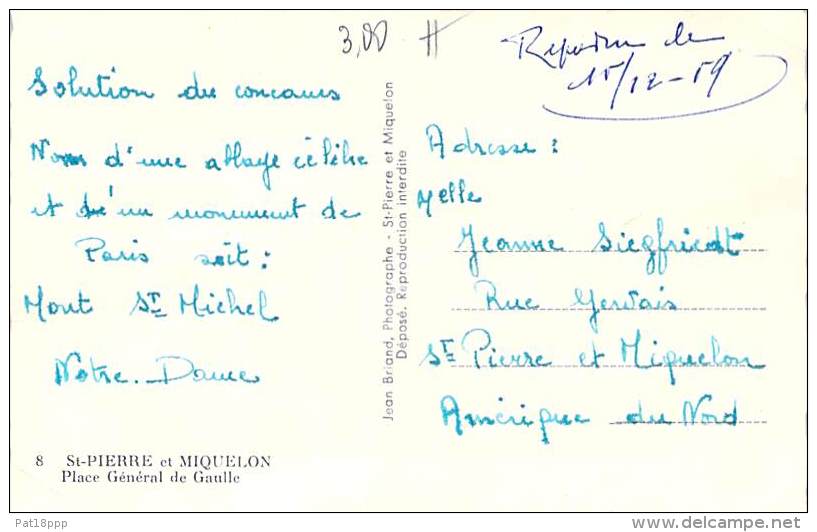 3,00
Réponse le
15/12-59
Solution du concours
Nom d'une abbaye célèbre
et d'un monument de
Paris soit :
Mont St Michel
Notre-Dame
Adresse :
Melle
Jeanne Siegfriedt
Rue Gervais
St Pierre et Miquelon
Amérique du Nord
Jean Briand, Photographe - St-Pierre et Miquelon
Déposé. Reproduction interdite
8 St-PIERRE et MIQUELON
Place Général de Gaulle
Pat18ppp
delcampe.net